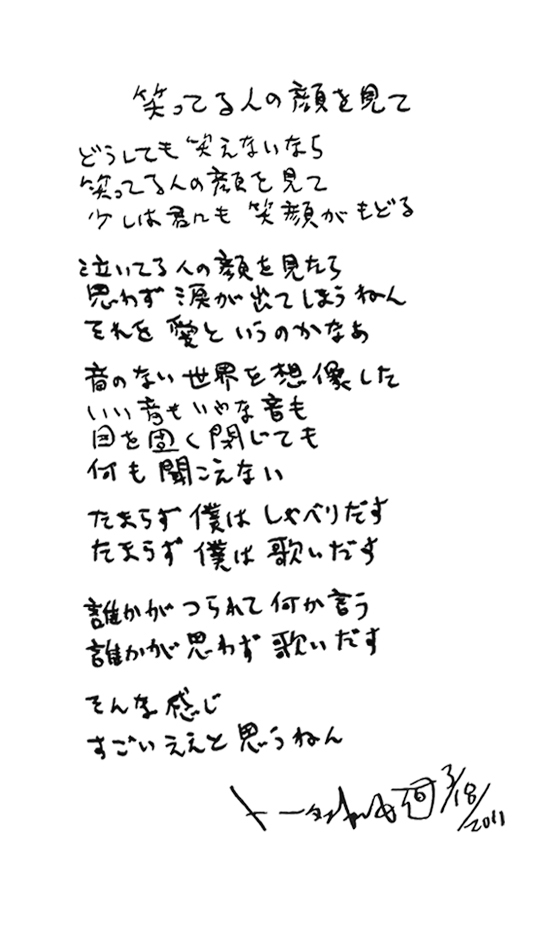 笑ってる人の顔を見て
どうしても笑えないなら
笑ってる人の顔を見て
少しは君にも笑顔がもどる
泣いてる人の顔を見たら
思わず涙が出てしまうねん
それを愛というのかなあ
音のない世界を想像した
いい音もいやな音も
目を固く閉じても
何も聞こえない
たまらず僕はしゃべりだす
たまらず僕は歌いだす
誰かがつられて何か言う
誰かが思わず歌いだす
そんな感じ
すごいええと思うねん
3/18/2011